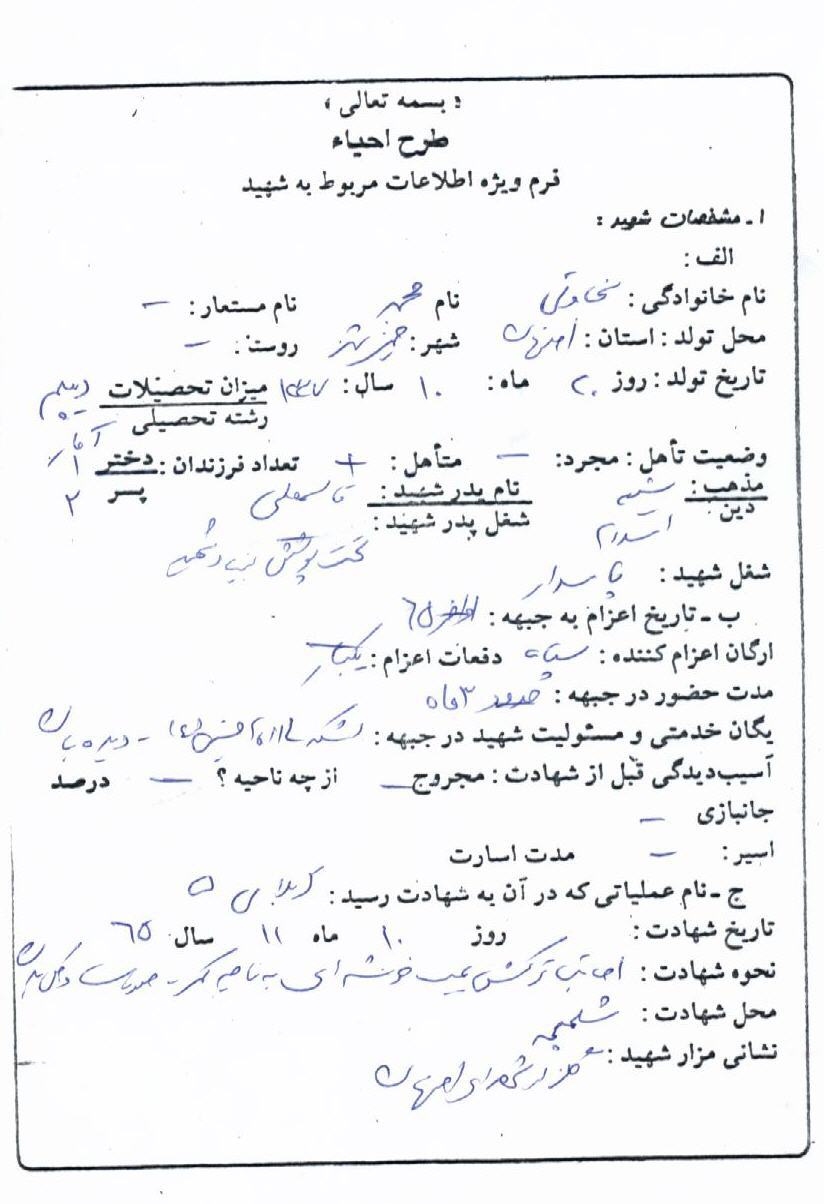 « بسمه تعالی »
طرح احیاء
فرم ویژه اطلاعات مربوط به شهید
۱ـ مشخصات شهید :
الف :
نام خانوادگی : سخاوتی نام محمد نام مستعار : –
محل تولد : استان : اصفهان شهر : خمینی شهر روستا : –
تاریخ تولد : روز ۲۰ ماه : ۱۰ سال : ۱۳۳۷ میزان تحصیلات دیپلم
رشته تحصیلی آمار
وضعیت تأهل : مجرد : – متأهل : + تعداد فرزندان : دختر ۱
مذهب : شیعه نام پدر شهید : قاسمعلی پسر ۲
دین : اسلام شغل پدر شهید : تحت پوشش
شغل شهید : پاسدار
ب ـ تاریخ اعزام به جبهه : اواخر ۶۵
ارگان اعزام کننده : سپاه دفعات اعزام : یکبار
مدت حضور در جبهه : حدود ۳ ماه
یگان خدمتی و مسئولیت شهید در جبهه : لشکر امام حسین (ع) – دیده بان
آسیب‌دیدگی قبل از شهادت : مجروح – از چه ناحیه ؟ – درصد
جانبازی –
اسیر : – مدت اسارت
ج ـ نام عملیاتی که در آن به شهادت رسید : کربلای ۵
تاریخ شهادت : روز ۱۰ ماه ۱۱ سال ۶۵
نحوه شهادت : اصابت ترکش بمب خوشه‌ای به ناحیه کمر –
محل شهادت : شلمچه
نشانی مزار شهید : گلزار شهدای اصفهان